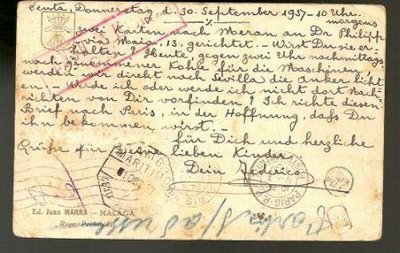 Ceuta, Donnerstag, d. 30. September 1937 - 10 Uhr.
morgens
Zwei Karten nach Meran an Dr. Philipp
via Maia, 13. gerichtet. - Wirst Du sie er-
halten? Abends gegen zwei Uhr nachmittags,
nach genommener Kohle für die Maschinen,
werden wir direkt nach Sevilla die Anker licht-
en. Werde ich oder werde ich nicht dort Nach-
richten von Dir vorfinden? Ich richte diesen
Brief nach Paris, in der Hoffnung, daß Du
ihn bekommen wirst. -
Für Dich und herzliche
Grüße für Deine lieben Kinder,
Dein Federico
MARITIM
PARIS
Ed. Juan MARRA - MALAGA